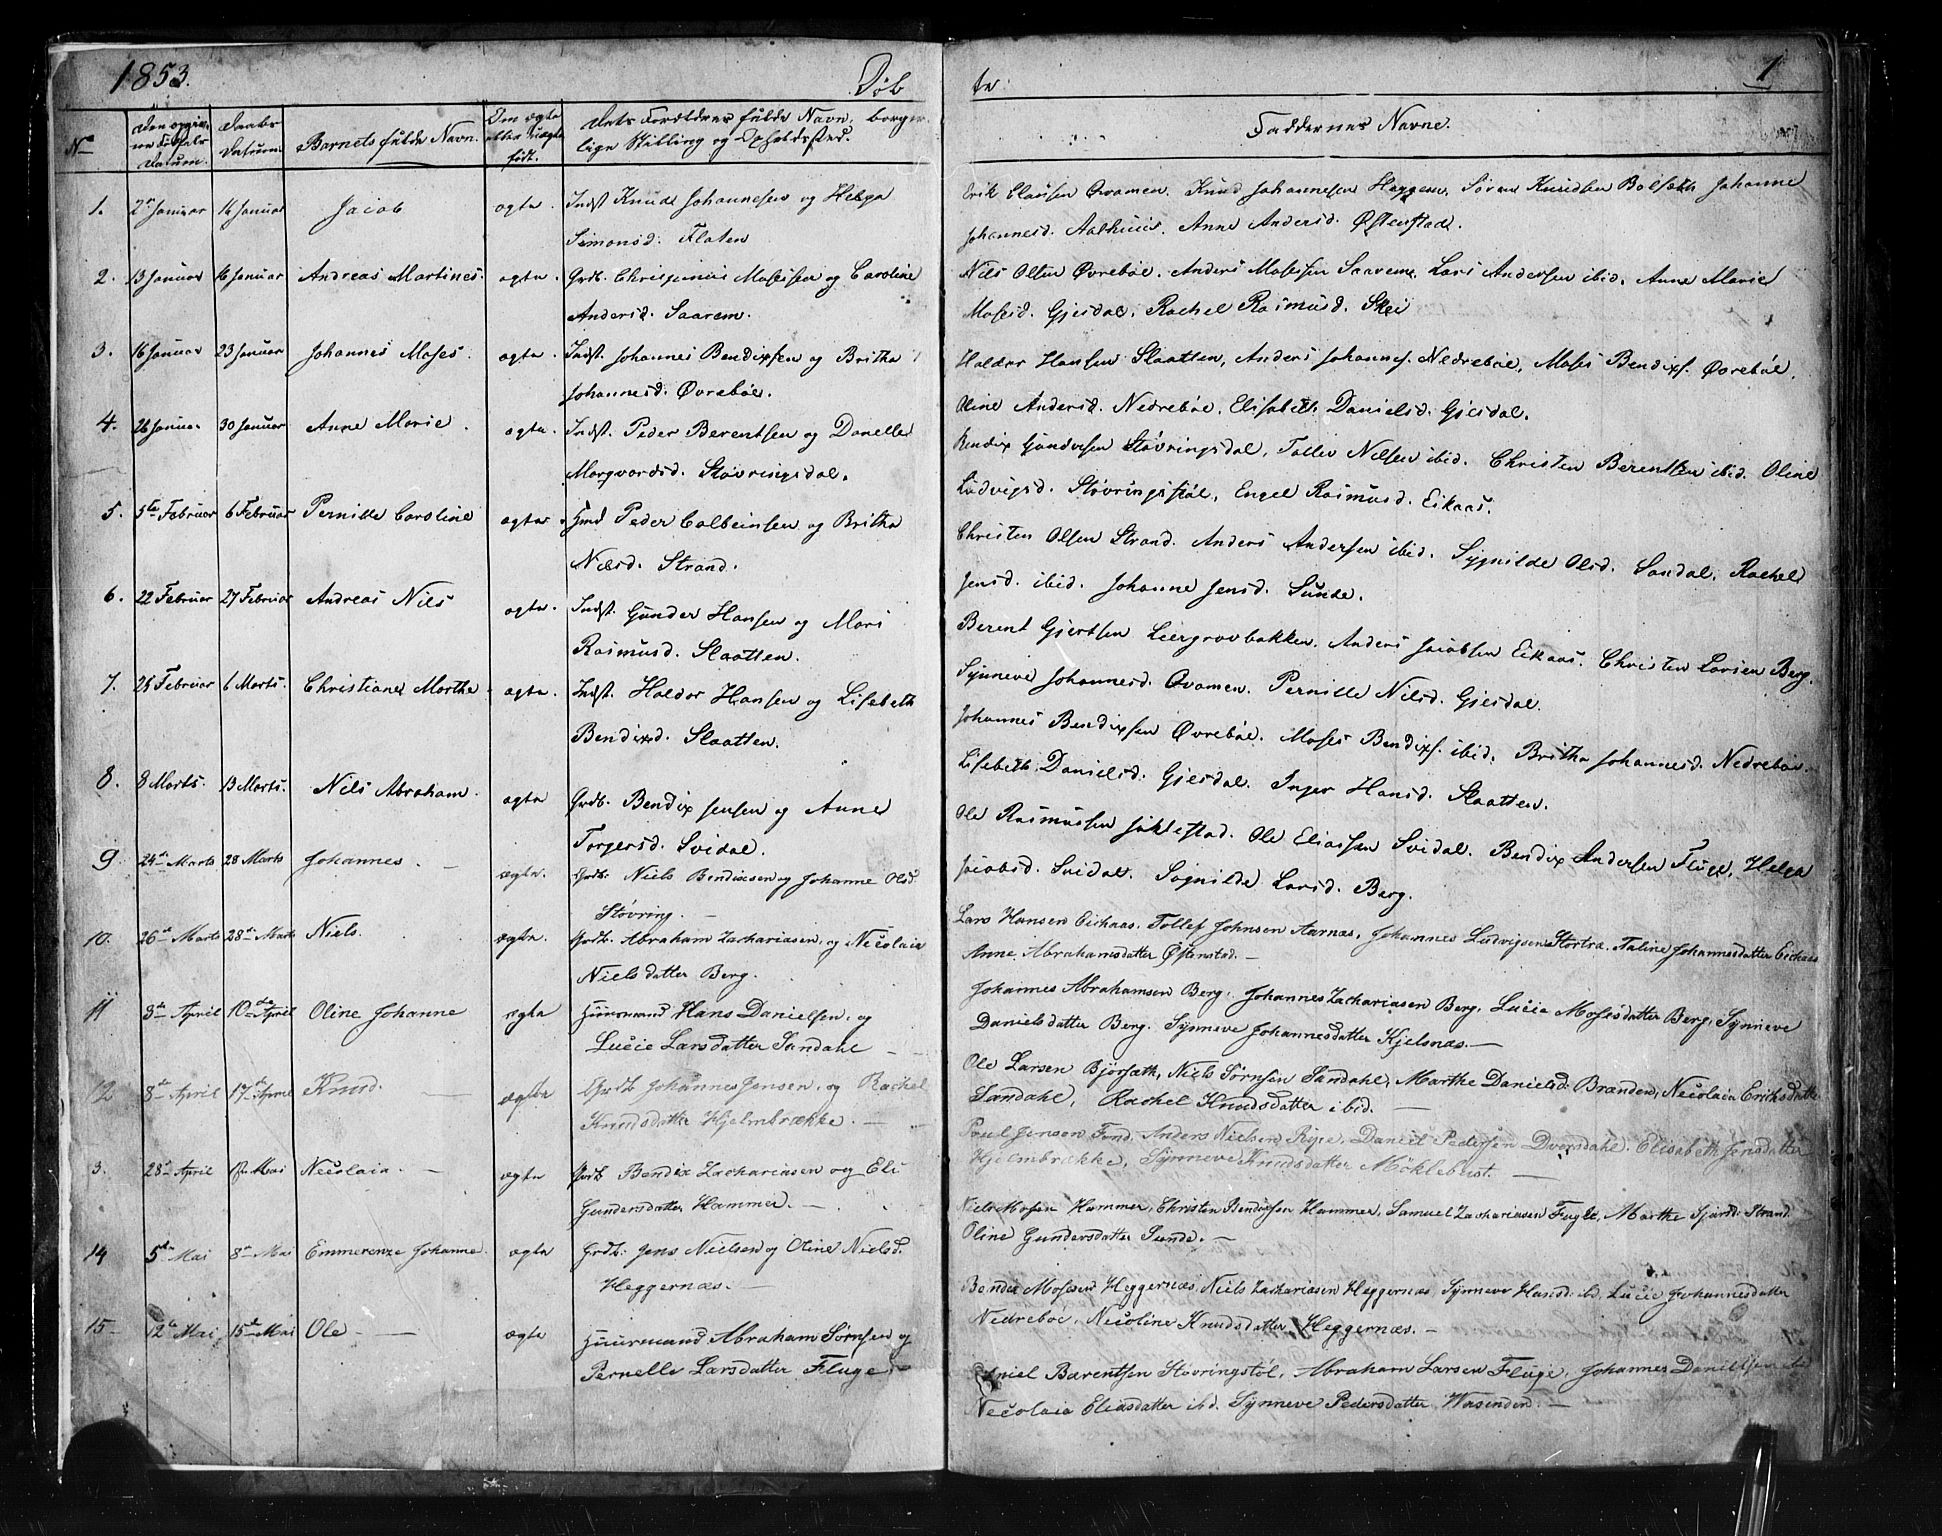 1853. Døb te 1
No Den opgivne Fødsels Datum. Daabs Datum Barnets fulde Navn. Om ægte eller uægte født. Dets Forældres fulde Navn, borgerlige Stilling og Opholdssted. Faddernes Navne.
1. 2den Januar 16 Januar Jacob ægte. Indst Knud Johannesen og Helga Erik Olausen Qvamen. Knud Johannesen Heggem. Søren Knudsen Bolsæth Johanne
Simonsd. Flaten Johannesd. Aalhuus. Anne Andersd. Østenstad.
2. 13 Januar 16 Januar Andreas Martines. ægte. Grdb. Mosessen og Caroline Nils Olsen Øvrebøe. Anders Mosessen Saarem. Lars Andersen ibid. Anne Marie
Andersd. Saarem. Mosesd. Gjesdal. Rachel Rasmusd. Skei
3. 16 Januar 23 Januar Johannes Moses. ægte. Indst. Johannes Bendixsen og Britha Haldor Hansen Slaatten, Anders Johannes. Nedrebøe, Moses Bendixs. Øvrebøe.
Johannesd. Øvrebøe. Oline Andersd. Nedrebøe. Elisabeth Danielsd. Gjesdal.
4. 26 Januar 30 Januar Anne Marie. ægte. Indst. Peder Berentsen og Danelle Bendix Gundersen Støvringsdal, Tollev Nilsen ibid. Christen Berentsen ibid. Oline
Margvardsd. Støvringsdal. Ludvigsd. Støvringsstøl, Engel Rasmusd. Eikaas.
5. 5te Februar 6 Februar Pernille Caroline ægte. Hmd Peder Colbeinsen og Britha Christen Olsen Strand. Anders Andersen ibid. Sygnilde Olsd. Sandal. Rachel
Nilsd. Strand. Jensd. ibid. Johanne Jensd. Sunde.
6. 22 Februar 27 Februar Andreas Nils ægte. Indst. Gunder Hansen og Mari Berent Gjertsen Leergrovbakken. Anders Jacobsen Eikaas. Christen Larsen Berg.
Rasmusd. Slaatten. Synneve Johannesd. Qvamen. Pernille Nilsd. Gjesdal.
7. 28 Februar 6 Marts. Christiane Marthe ægte. Indst. Haldor Hansen og Lisebeth Johannes Bendixsen Øvrebøe. Moses Bendixs. ibid. Britha Johannesd. Nedrebøe.
Bendixd. Slaatten. Lisebeth Danielsd. Gjesdal. Inger Hansd. Slaatten.
8. 8 Marts. 13 Marts. Nils Abraham. ægte Grdb. Bendix Jensen og Anne Ole Rasmussen Sølvestad. Ole Eliassen Svidal. Bendix Andersen Fluge, Helga
Torgersd. Svidal. Jacobsd. Svidal. Sognilde Larsd. Berg.
9. 24de Marts 28 Marts Johannes. — ægte. Grdb. Niels Bendixsen og Johanne Olsd. Lars Hansen Eickaas. Tollef Johnsen Aarnæs. Johannes Ludvigsen Støvring. Taline Johannesdatter Eickaas
Støvring. — Anne Abrahamsdatter Østenstad. —
10. 26de Marts 28de Marts Niels. ægte. Grdb. Abraham Zachariasen, og Necolaia Johannes Abrahamsen Berg. Johannes Zachariasen Berg, Lucie Mosesdatter Berg, Synneve
Nielsdatter Berg. Danielsdatter Berg. Synneve Johannesdatter Kjelsnæs. —
11 3de April 10de April Oline Johanne ægte Huusmand Hans Danielsen, og Ole Larsen Bjørsæth, Niels Sørnsen Sandahl, Marthe Danielsd. Brænden, Necolaia Eriksdatter
Lucie Larsdatter Sandahl — Sandahl, Rachel Knudsdatter ibid. —
12 8de April 17de April Knud. — ægte Grdb Johannes Jensen, og Rachel Poul Jensen Fond, Anders Nielsen Ripe, Daniel Pedersen Dvergsdahl, Elisabeth Jensdatter
Knudsdatter Hjelmbrække. — Hjelmbrække, Synneve Knudsdatter Møklebust. —
3. 28de April Mai Necolaia. — ægte Grdb Bendix Zachariasen og Eli Niels Mosen Hammer, Christen Bendixsen Hammer, Samuel Zachariasen Fugle, Marthe Strand.
Gundersdatter Hammer. — Oline Gundersdatter Sunde. —
14 5te Mai 8de Mai Emmerenze Johanne. ægte Grdb: Jens Nielsen og Oline Nielsd. Bendix Mosesen Heggernæs, Niels Zachariasen Heggernæs, Synneve Hansd. ibd, Lucie Johannesdatter
Heggernæs. — Nedrebøe, Necoline Knudsdatter Heggernæs. —
15 12te Mai 15de Mai Ole. — ægte Huusmand Abraham Sørnsen og Daniel Bærentsen Støvringstøl, Abraham Larsen Fluge, Johannes Danielsen ibd
Pernelle Larsdatter Fluge. Necolaia Eliasdatter ibd. Synneve Pedersdatter Wasenden. —